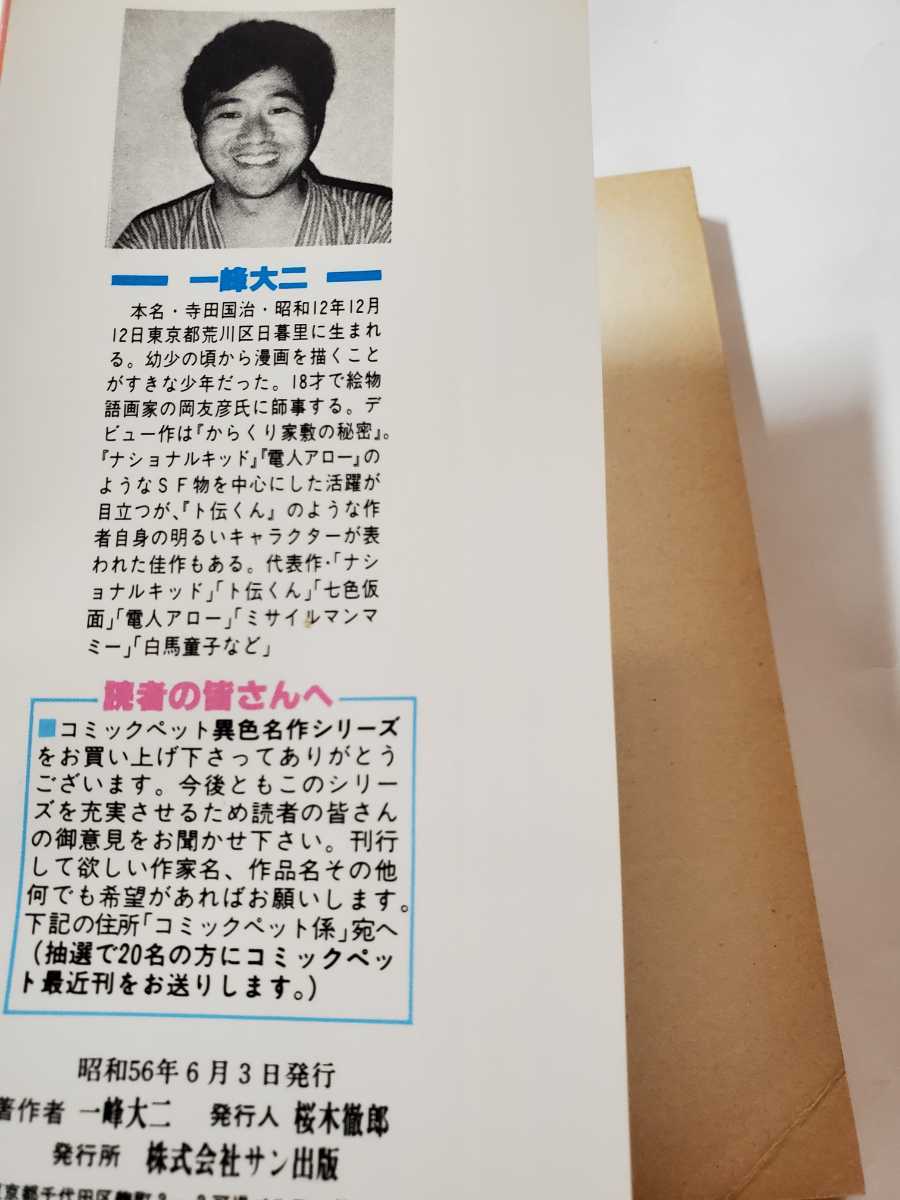 一峰大二
本名・寺田国治・昭和12年12月
12日東京都荒川区日暮里に生まれ
る。幼少の頃から漫画を描くこと
がすきな少年だった。18才で絵物
語画家の岡友彦氏に師事する。デ
ビュー作は『からくり家敷の秘密』。
『ナショナルキッド』『電人アロー』の
ようなSF物を中心にした活躍が
目立つが、『ト伝くん』のような作
者自身の明るいキャラクターが表
われた佳作もある。代表作・「ナシ
ョナルキッド」「ト伝くん」「七色仮
面」「電人アロー」「ミサイルマンマ
ミー」「白馬童子など」
読者の皆さんへ
■コミックペット異色名作シリーズ
をお買い上げ下さってありがとう
ございます。今後ともこのシリー
ズを充実させるため読者の皆さん
の御意見をお聞かせ下さい。刊行
して欲しい作家名、作品名その他
何でも希望があればお願いします。
下記の住所「コミックペット係」宛へ
(抽選で20名の方にコミックペッ
ト最近刊をお送りします。)
昭和56年6月3日発行
著作者 一峰大二 発行人 桜木徹郎
発行所 株式会社サン出版
東京都千代田区麹町